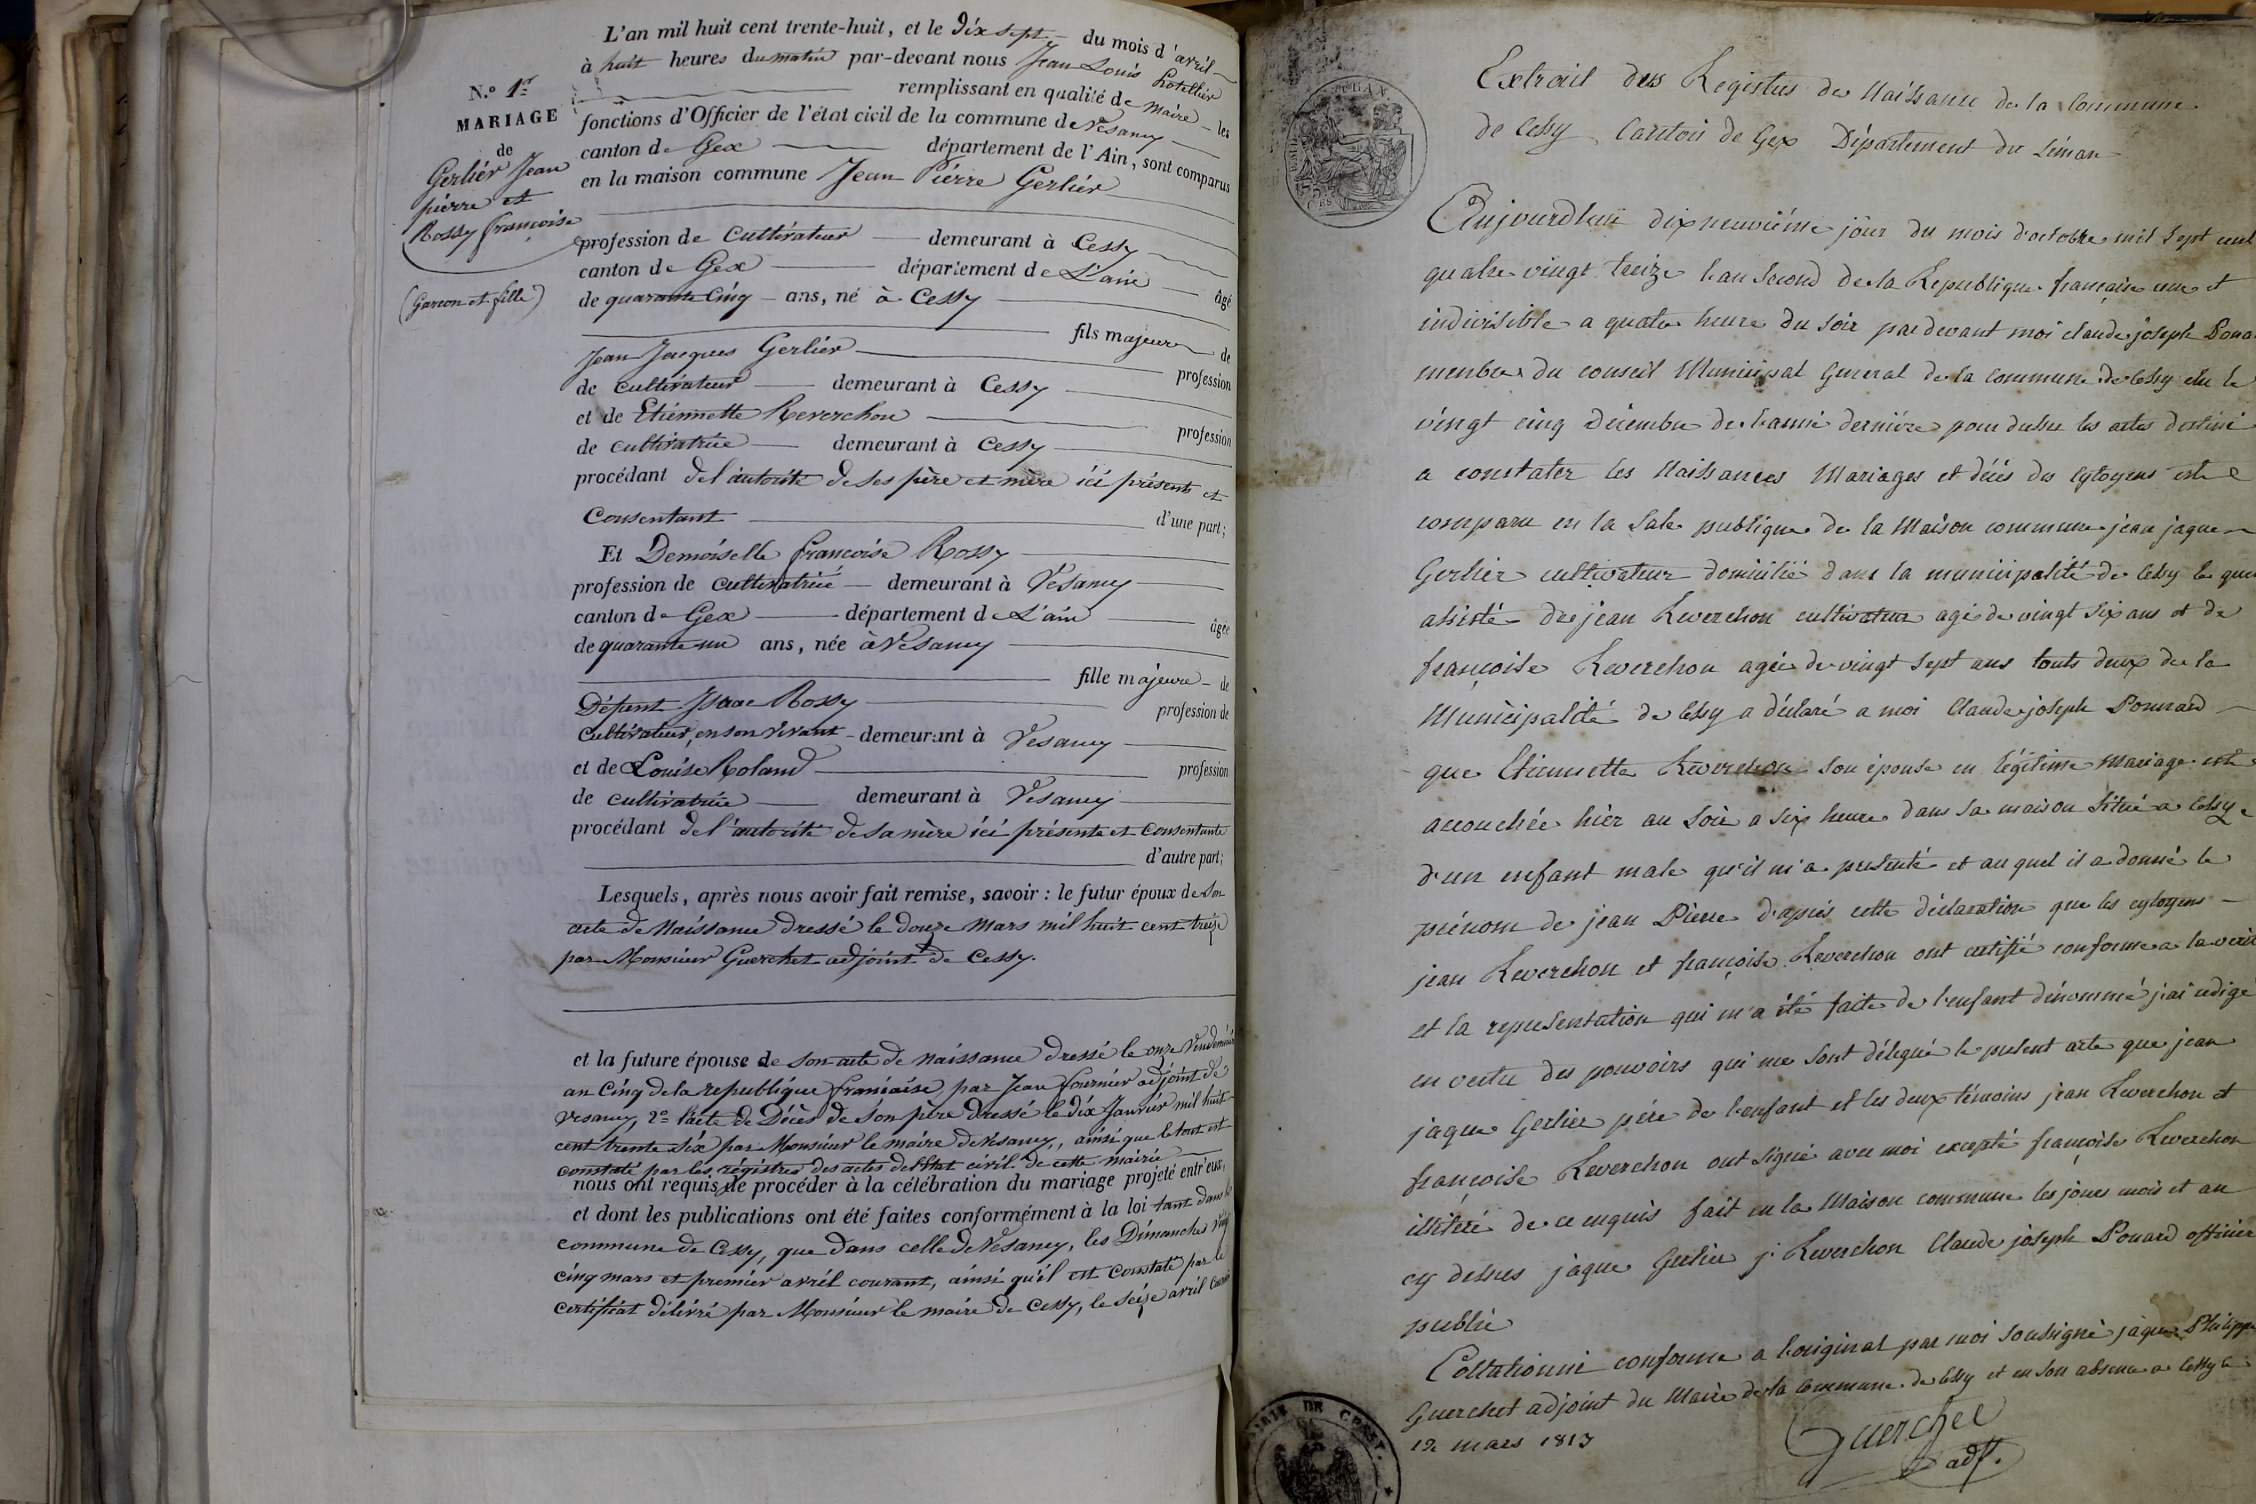 L'an mil huit cent trente-huit, et le Dix sept - du mois d'avril
à huit heures du matin par-devant nous Jean Louis hotellier
remplissant en qualité de maire - les
fonctions d'Officier de l'état civil de la commune de Vesancy
canton de Gex département de l'Ain, sont comparus
en la maison commune Jean Pierre Gerlier
N.° 1er
MARIAGE
de
Gerlier Jean
pierre et
Rossy françoise
(Garcon et fille)
profession de Cultivateur demeurant à Cessy
canton de Gex département de L'ain âgé
de quarante cinq - ans, né à Cessy
fils majeur de
Jean Jacques Gerlier profession
de cultivateur demeurant à Cessy
et de Etiennette Reverchon profession
de cultivatrice demeurant à Cessy
procédant de l'autorité de ses père et mère ici présents et
Consentant d'une part;
Et Demoiselle françoise Rossy
profession de cultivatrice demeurant à Vesancy
canton de Gex département de L'ain âgée
de quarante un ans, née à Vesancy
fille majeure - de
Défunt Isaac Rossy profession de
Cultivateur, en son vivant - demeurant à Vesancy
et de Louise Roland profession
de cultivatrice demeurant à Vesancy
procédant de l'autorité de sa mère ici présente et consentante
d'autre part;
Lesquels, après nous avoir fait remise, savoir : le futur époux de son
acte de Naissance dressé le douze mars mil huit cent treize
par Monsieur Guerchet adjoint de Cessy.
et la future épouse de son acte de naissance dressé le onze Vendemiaire
an Cinq de la republique française par Jean fournier adjoint de
Vesancy, 2° l'acte de Décès de son père dressé le dix Janvier mil huit
cent trente six par Monsieur le maire de Vesancy, ainsi que le tout est
constaté par les régistres des actes de l'Etat civil de cette mairie
nous ont requis de procéder à la célébration du mariage projeté entr'eux,
et dont les publications ont été faites conformément à la loi tant dans la
commune de Cessy, que dans celle de Vesancy, les Dimanches vingt
cinq mars et premier avril courant, ainsi qu'il est constaté par le
certificat délivré par Monsieur le maire de Cessy, le seize avril courant
Extrait des Registres de Naissance de la Commune
de Cessy Canton de Gex Département du Léman
Aujourdhui dix neuvième jour du mois d'octobre mil sept cent
quatre vingt treize l'an second de la Republique française une et
indivisible a quatre heure du soir par devant moi claude joseph
membre du conseil Municipal General de la commune de Cessy elu le
vingt cinq Décembre de l'année dernière pour dresser les actes destiné
a constater les Naissances Mariages et décés des Cytoyens est
comparu en la Sale publique de la Maison commune jean jaque
Gerlier cultivateur domicilié dans la municipalité de Cessy le quel
assisté de jean Reverchon cultivateur agé de vingt six ans et de
françoise Reverchon agée de vingt sept ans touts deux de la
Municipalité de Cessy a déclaré a moi Claude joseph Pouard
que Etiennette Reverchon son épouse en légitime mariage est
accouchée hier au soir a six heure dans sa maison situé a Cessy
d'un enfant male qu'il m'a présenté et au quel il a donné le
prénom de jean Pierre d'après cette déclaration que les cytoyens
jean Reverchon et françoise Reverchon ont certifié conforme a la verité
et la representation qui m'a été faite de l'enfant dénommé j'ai redigé
en vertu des pouvoirs qui me sont délegué le présent acte que jean
jaque Gerlier père de l'enfant et les deux témoins jean Reverchon et
françoise Reverchon ont signé avec moi excepté françoise Reverchon
illiteré de ce enquis fait en la Maison commune les jour mois et an
cy dessus jaque Gerlier j. Reverchon Claude joseph Pouard officier
public
Collationné conforme a l'original par moi soussigné jaque Philippe
Guerchet adjoint du Maire de la commune de Cessy et en son absence a Cessy le
12 mars 1813
Guerchet
adj.